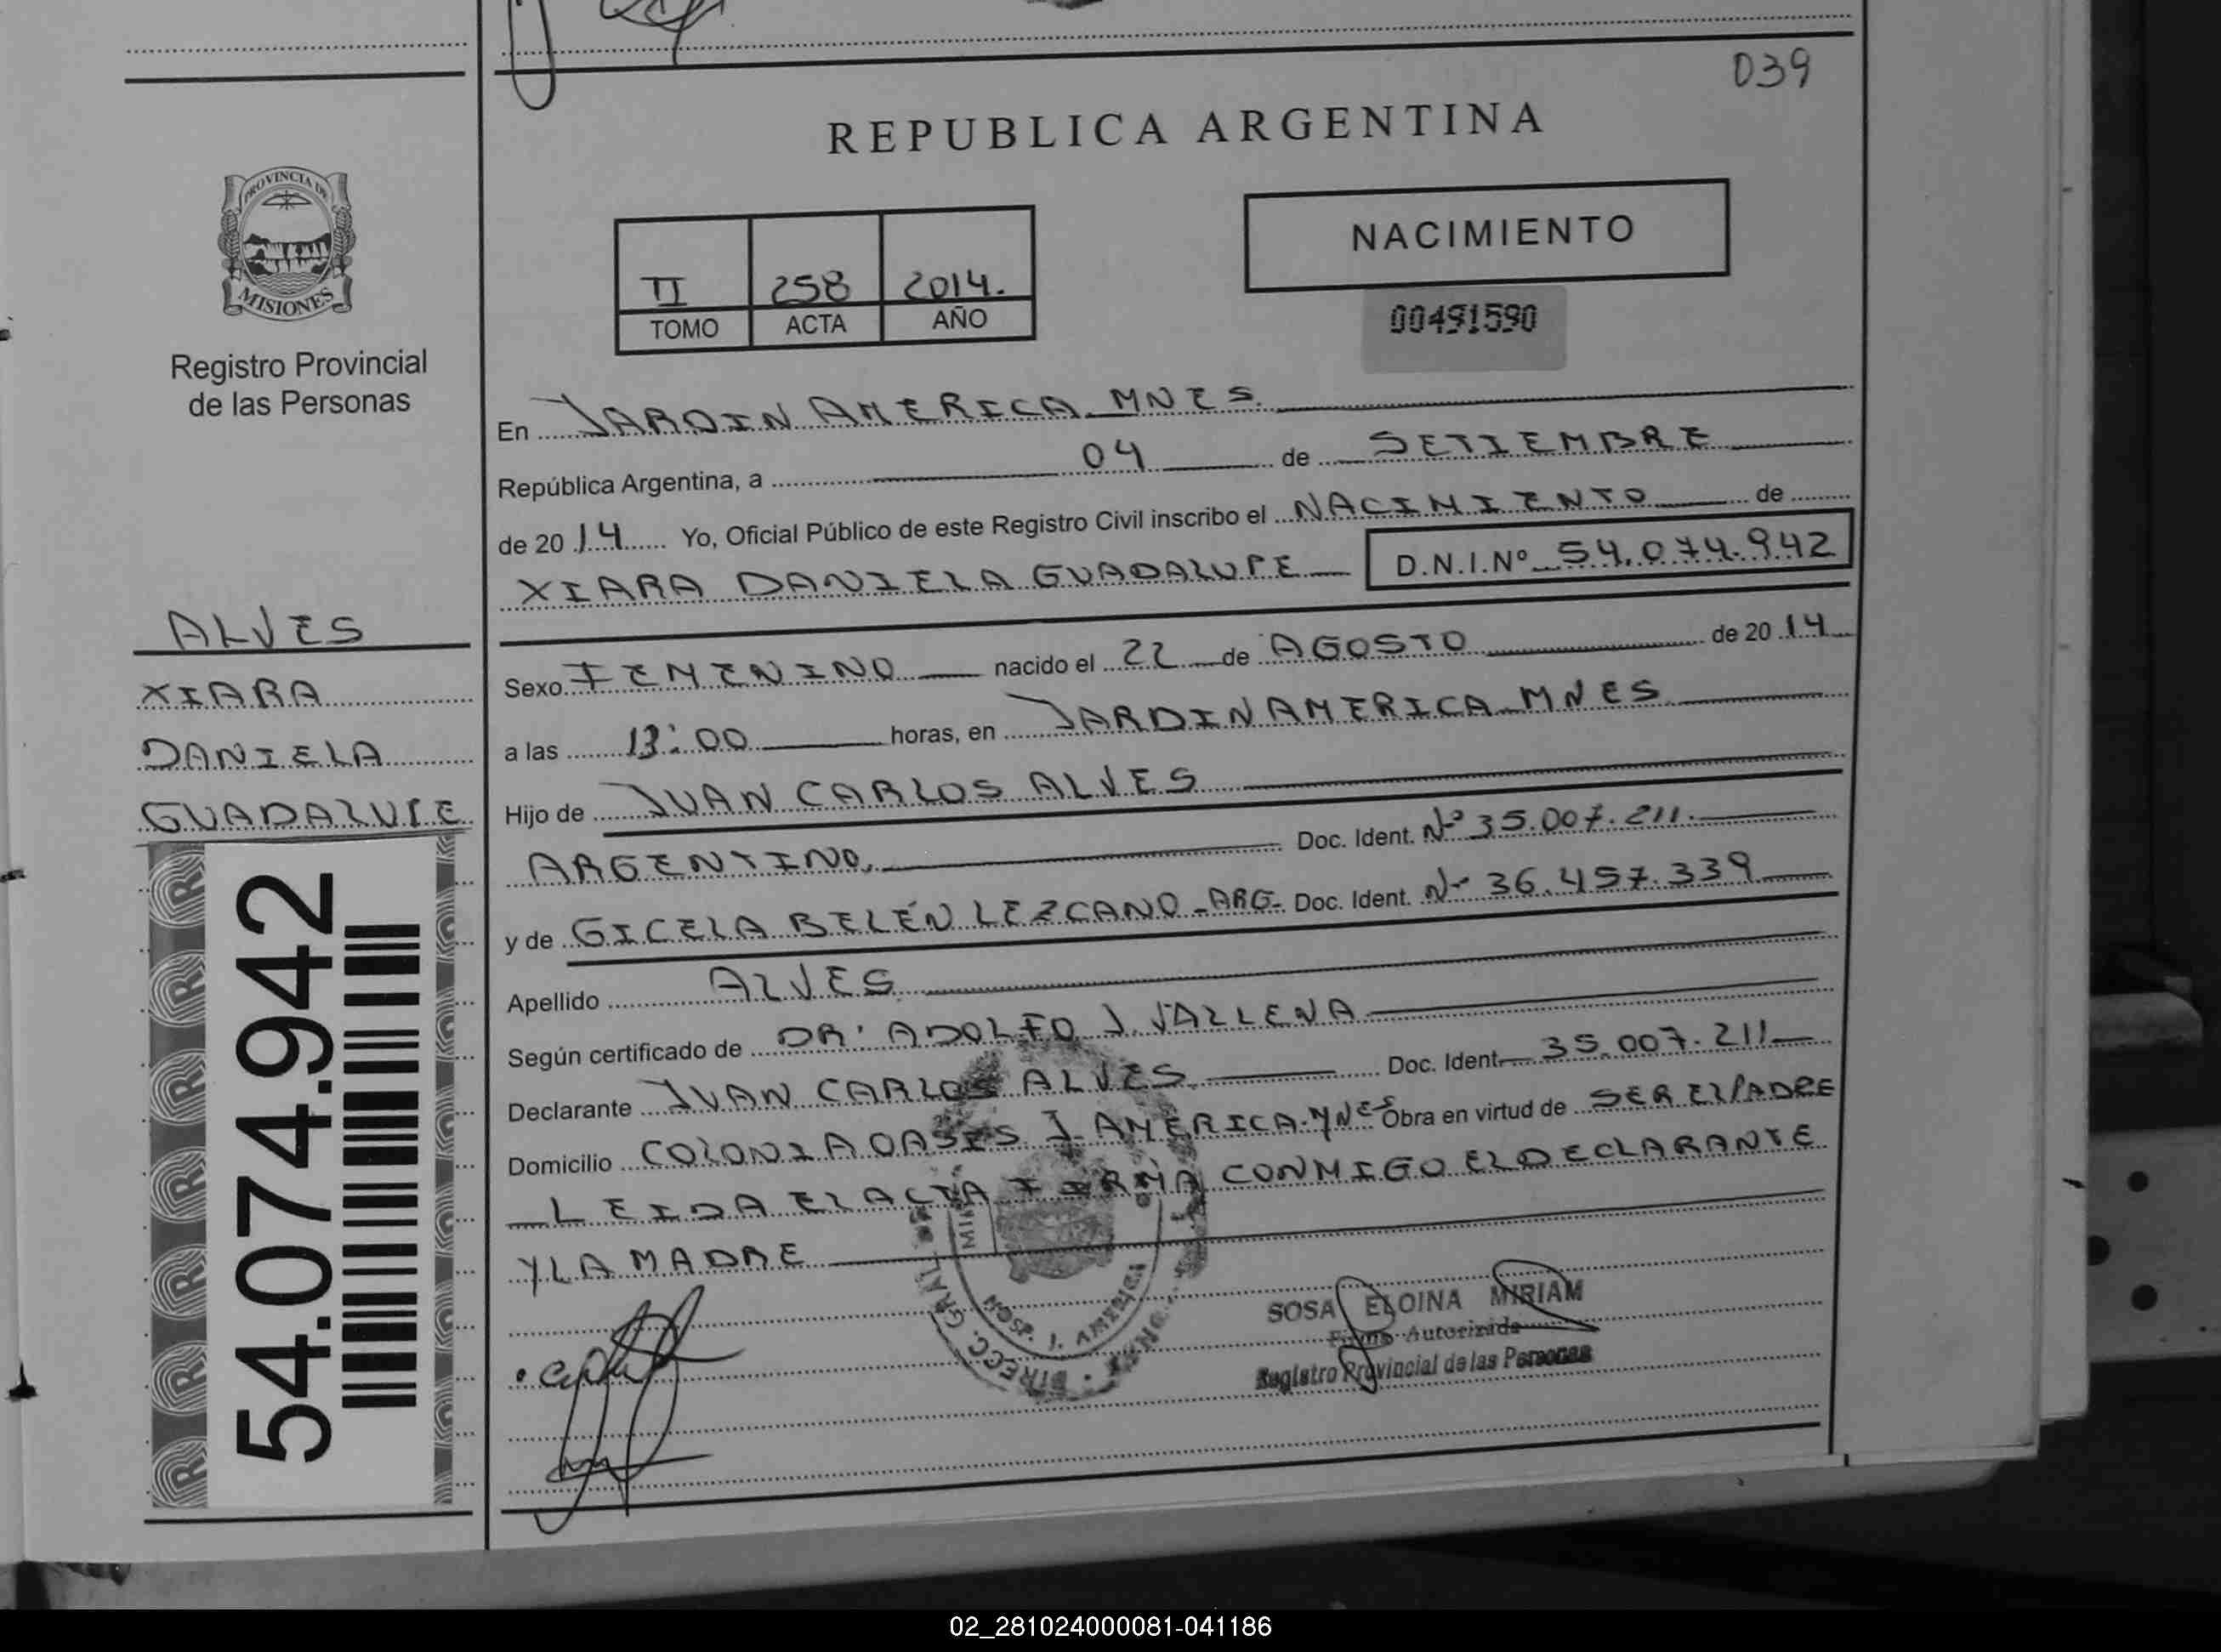 039
REPUBLICA ARGENTINA
PROVINCIA DE
MISIONES
Registro Provincial
de las Personas
II 258 2014.
TOMO ACTA AÑO
NACIMIENTO
00491590
En JARDIN AMERICA MNES.
República Argentina, a 04 de SETIEMBRE
de 2014 Yo, Oficial Público de este Registro Civil inscribo el NACIMIENTO de
XIARA DANIELA GUADALUPE D.N.I.Nº 54.074.942
ALVES
XIARA
DANIELA
GUADALUPE
54.074.942
Sexo FEMENINO nacido el 22 de AGOSTO de 2014
a las 13:00 horas, en JARDIN AMERICA MNES
Hijo de JUAN CARLOS ALVES
ARGENTINO, Doc. Ident. Nº 35.007.211.
y de GICELA BELÉN LEZCANO - ARG- Doc. Ident. Nº 36.457.339
Apellido ALVES
Según certificado de DR. ADOLFO J. VALLENA
Declarante JUAN CARLOS ALVES Doc. Ident. 35.007.211
Domicilio COLONIA OASIS J. AMERICA-MNES Obra en virtud de SER EL PADRE
LEIDA EL ACTA FIRMA CONMIGO EL DECLARANTE
Y LA MADRE
DIRECC. GRAL.
HOSP. J. AMERICA
SOSA ELOINA MIRIAM
Firma Autorizada
Registro Provincial de las Personas
02_281024000081-041186